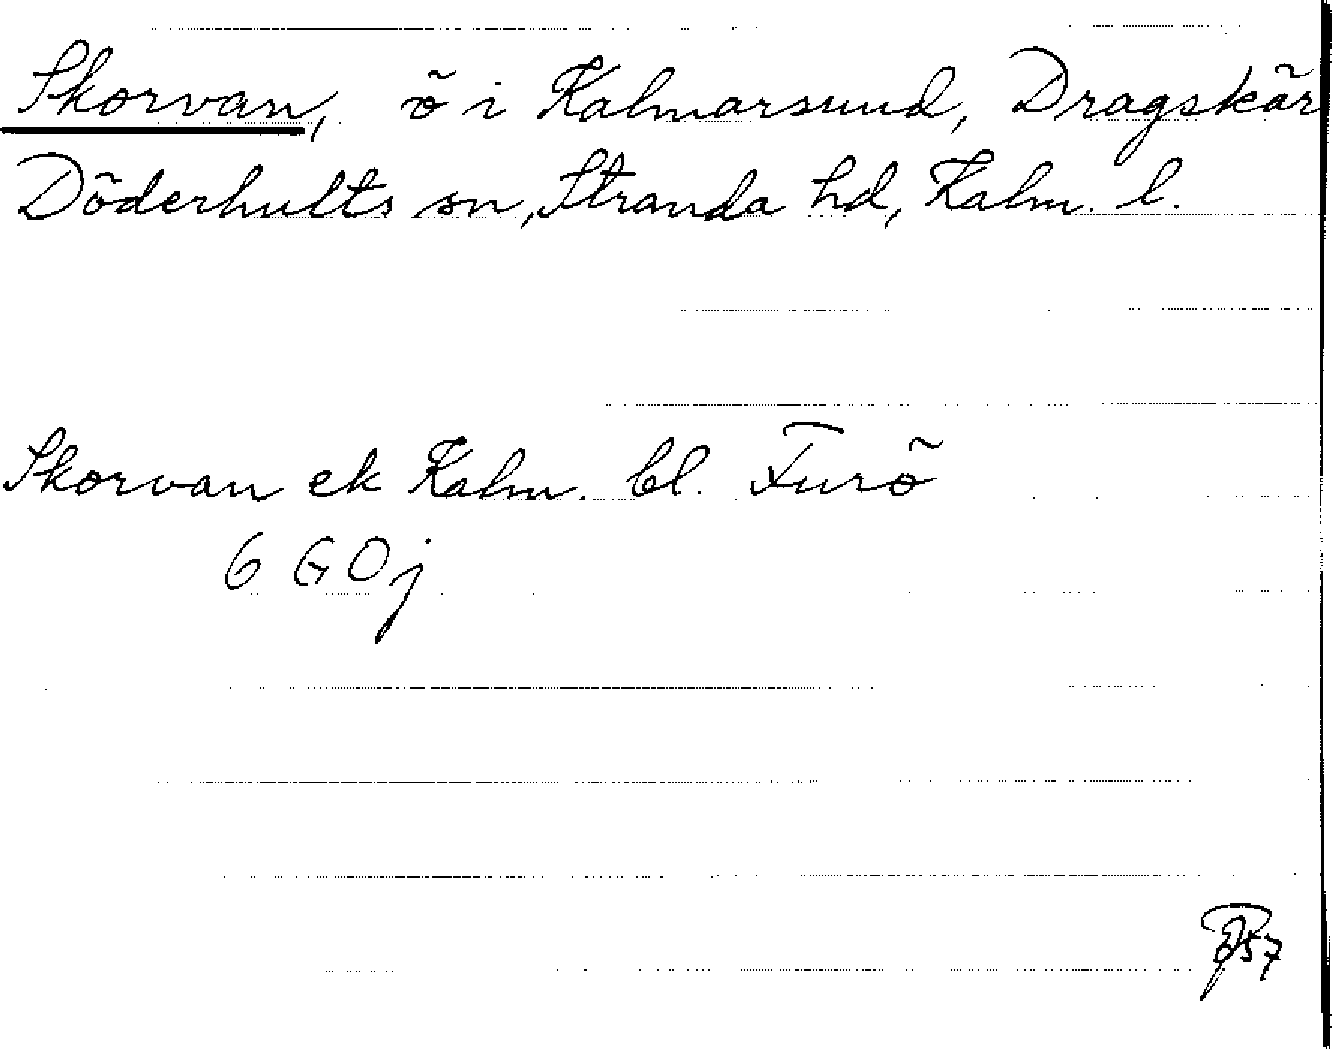 Skorvan, ö i Kalmarsund, Dragskär
Döderhults sn, Stranda hd, Kalm. l.
Skorvan ek Kalm. bl. Furö
6 G 0 j
57